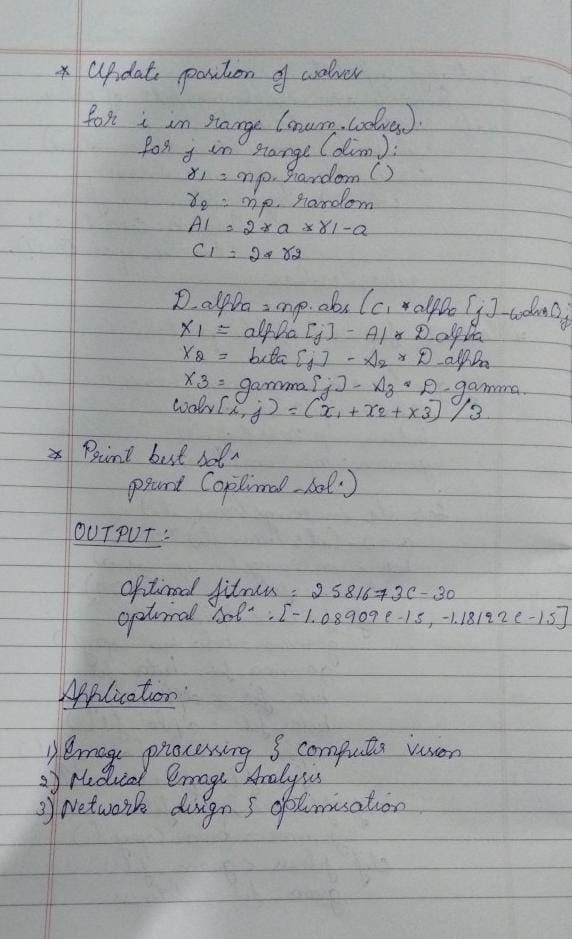 * Update position of wolves
for i in range (num.wolves):
for j in range (dim):
r1 = np.random ()
r2 = np.random
A1 = 2*a*r1-a
C1 = 2*r2
D_alpha = np.abs (C1 * alpha [j] - wolves[i,j
X1 = alpha [j] - A1 * D_alpha
X2 = beta [j] - A2 * D_alpha
X3 = gamma [j] - A3 * D-gamma.
wolv[i,j) = (x1 + x2 + x3] /3
* Print best solⁿ
print (optimal_sol.)
OUTPUT :-
Optimal fitness = 2.581673e-30
optimal solⁿ : [-1.08909e-15, -1.18192e-15]
Application:
1) Image processing & computer vision
2) Medical Image Analysis
3) Network design & optimisation